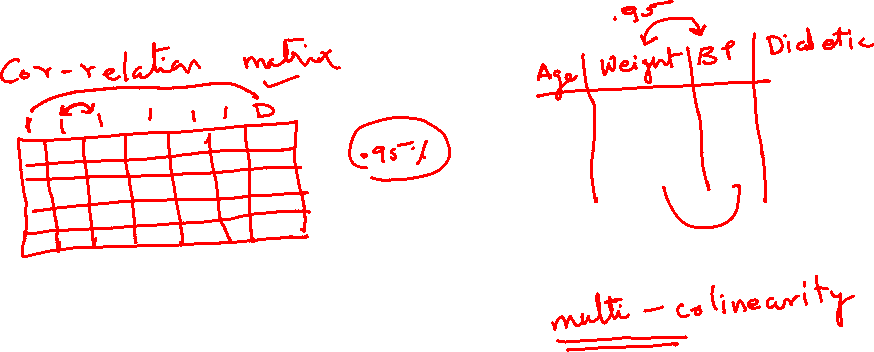 Cor-relation matrix
D
.95%
.95
Age Weight BP Diabetic
multi - colinearity